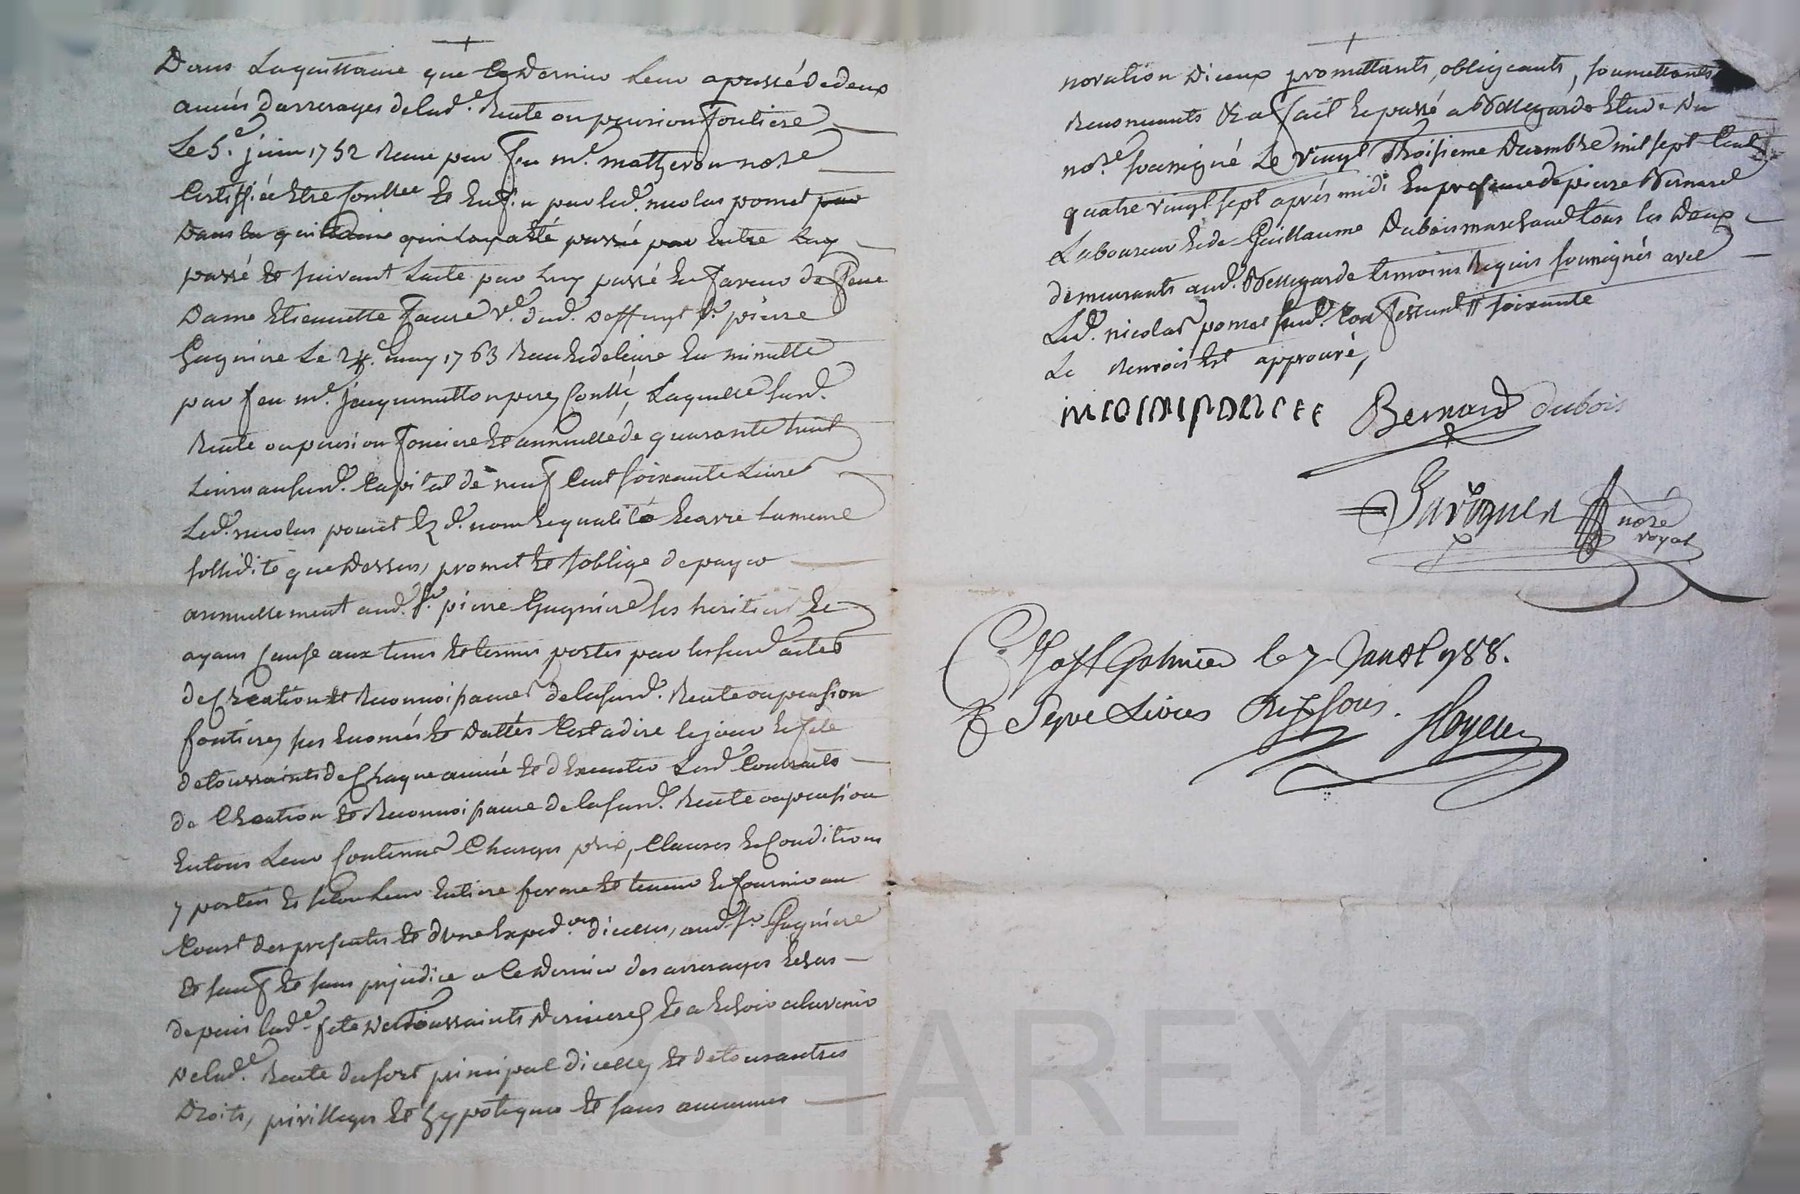 Dans Laquittance que Ce Dernier Leur a passé de deux
années d'arrerages de lad.e Rente ou pension fontiere
Le 5.e juin 1752 Receue par feu m.e mattheron no.re
Certiffiée etre Conllée et Enfin par led. nicolas pomet par
passé et suivant Lacte par Luy passé En faveur de feue
Dame Etiennette faure v.e dud. deffunt s.r pierre
Gagniere Le 24.e may 1763 Receu En minutte
par feu m.e jacquemetton Conllé, Laquelle susd.
Rente ou pension fonciere et annuelle de quarante huit
Livres au susd. Capital de neuf Cent soixante Livres
Led. nicolas pomet Ez d. nom Et qualité Et avec la meme
sollidité que Dessus, promet et soblige de payer
annuellement aud. s.r pierre Gagniere ses heritiers Et
ayans Cause aux tems et termes portés par les susd. actes
de Creation et Reconnoissances de la susd. Rente ou pension
fontiere, sus Enoncés et Dattés Cest a dire le jour Et fete
de toussaints de Chaque année et d'Executer Lesd. Contrats
de Creation et Reconnoissance de la susd. Rente ou pension
En tous Leur Contenus Charges prix, Clauses Et Conditions
y portées et selon Leur Entiere forme et teneur Et fournir au
Cours des presentes et d'une Exped.on dicelles, aud. s.r Gagniere
et sauf et sans prejudice a Ce Dernier des arrerages Echus
depuis lad.e fete de toussaints Derniere, et a Echoir a lavenir
De lad.e Rente du sort principal dicelle, et de tous autres
Droits, privilleges et hypoteques et sans aucunes
novation Diceux promettants, obligeants, soumettants
Renonceants &a fait Et passé a Bellegarde Etude Du
no.re soussigné Le vingt Troisieme Decembre mil sept Cent
quatre vingt sept après midi En presence de pierre Bernard
Laboureur Et de Guillaume Dubois marchand tous les Deux
demeurants aud. Bellegarde temoins Requis soussignés avec
Led. nicolas pomet susd. Confessant // soixante
Le Renvoi Est approuvé,
Bernard dubois
no.re
royal
C. a St Galmier le 7 Janv.r 1788.
R Sept Livres dix sous.